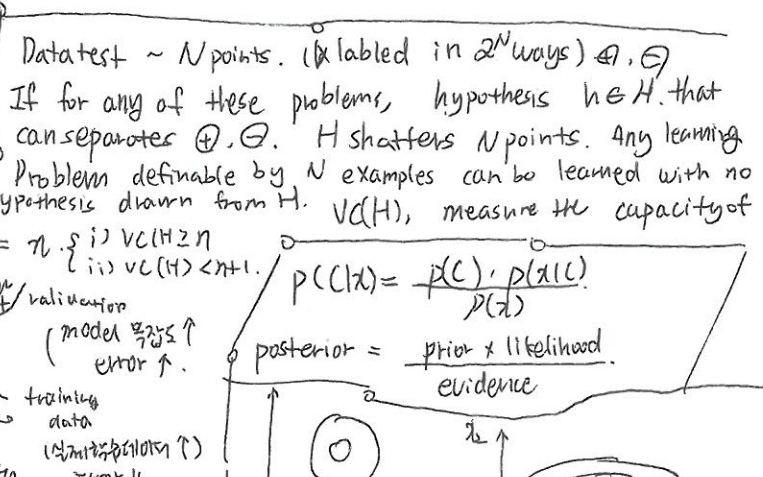 Datatest ~ N points. (labled in 2^N ways) ⊕, ⊖
If for any of these problems, hypothesis h∈H. that
can separates ⊕, ⊖. H shatters N points. Any learning
Problem definable by N examples can be learned with no
ypothesis drawn from H. VC(H), measure the capacity of
= n. { i) VC(H ≥ n
ii) VC(H) < n+1.
p(C|x) = p(C) · p(x|C)
p(x)
validation
(model 복잡도 ↑
error ↑.
posterior = prior x likelihood.
evidence
training
data
↑)
x₂